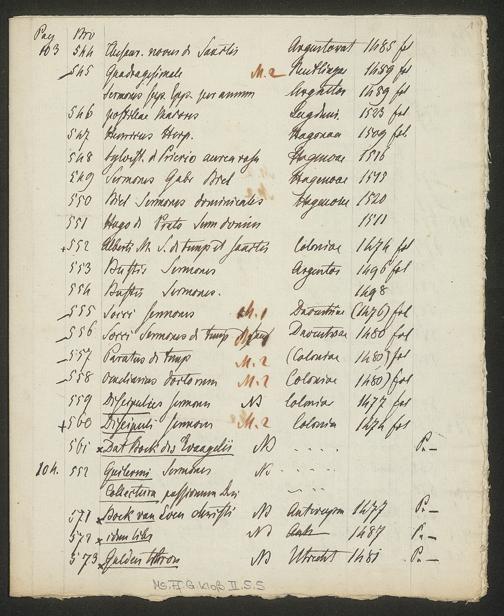 Pag Nro
103 544 novus de Sanctis Argentorat 1485 fol
545 Quadragesimale M.2 Reutlingae 1489 fol
Sermones per annum 1489 fol
546 Lugduni 1523 fol
547 Henricus Herp. Hagenau 1509 fol
548 Sylvest. d Prierio aurea rosa Hagenoae 1516
549 Sermones Gabr Biel Hagenoae 1515
550 Biel Sermones dominicales Hagenoae 1520
551 Hugo de Prato Serm domin 1511
+552 Alberti M. S. de temp et sanctis Coloniae 1474 fol
553 Bustis Sermones Argentor 1496 fol
554 Bustis Sermones. 1498
555 Socci Sermones M.1 Daventriae (1476) fol
556 Socci Sermones de temp Daventriae 1480 fol
557 Paratus de temp M.2 (Coloniae 1480) fol
558 doctorum M.2 Coloniae 1480) fol
559 Discipulus Sermones NB Colonia 1477 fol
+560 Discipuli Sermones M.2 Colonia 1474 fol
561 x Dat Boek des Evangelis NB . . . . P. —
104. 552 Guilermi Sermones N . . . .
Collectura passionum Dni
571 x Boek van Leven Christi NB Antwerpen 1477 P. —
572 x idem liber NB Antv 1487 P. —
573 x Gulden Thron NB Utrecht 1481 P. —
Ms. Ff. G. Kloß II. 5. 5